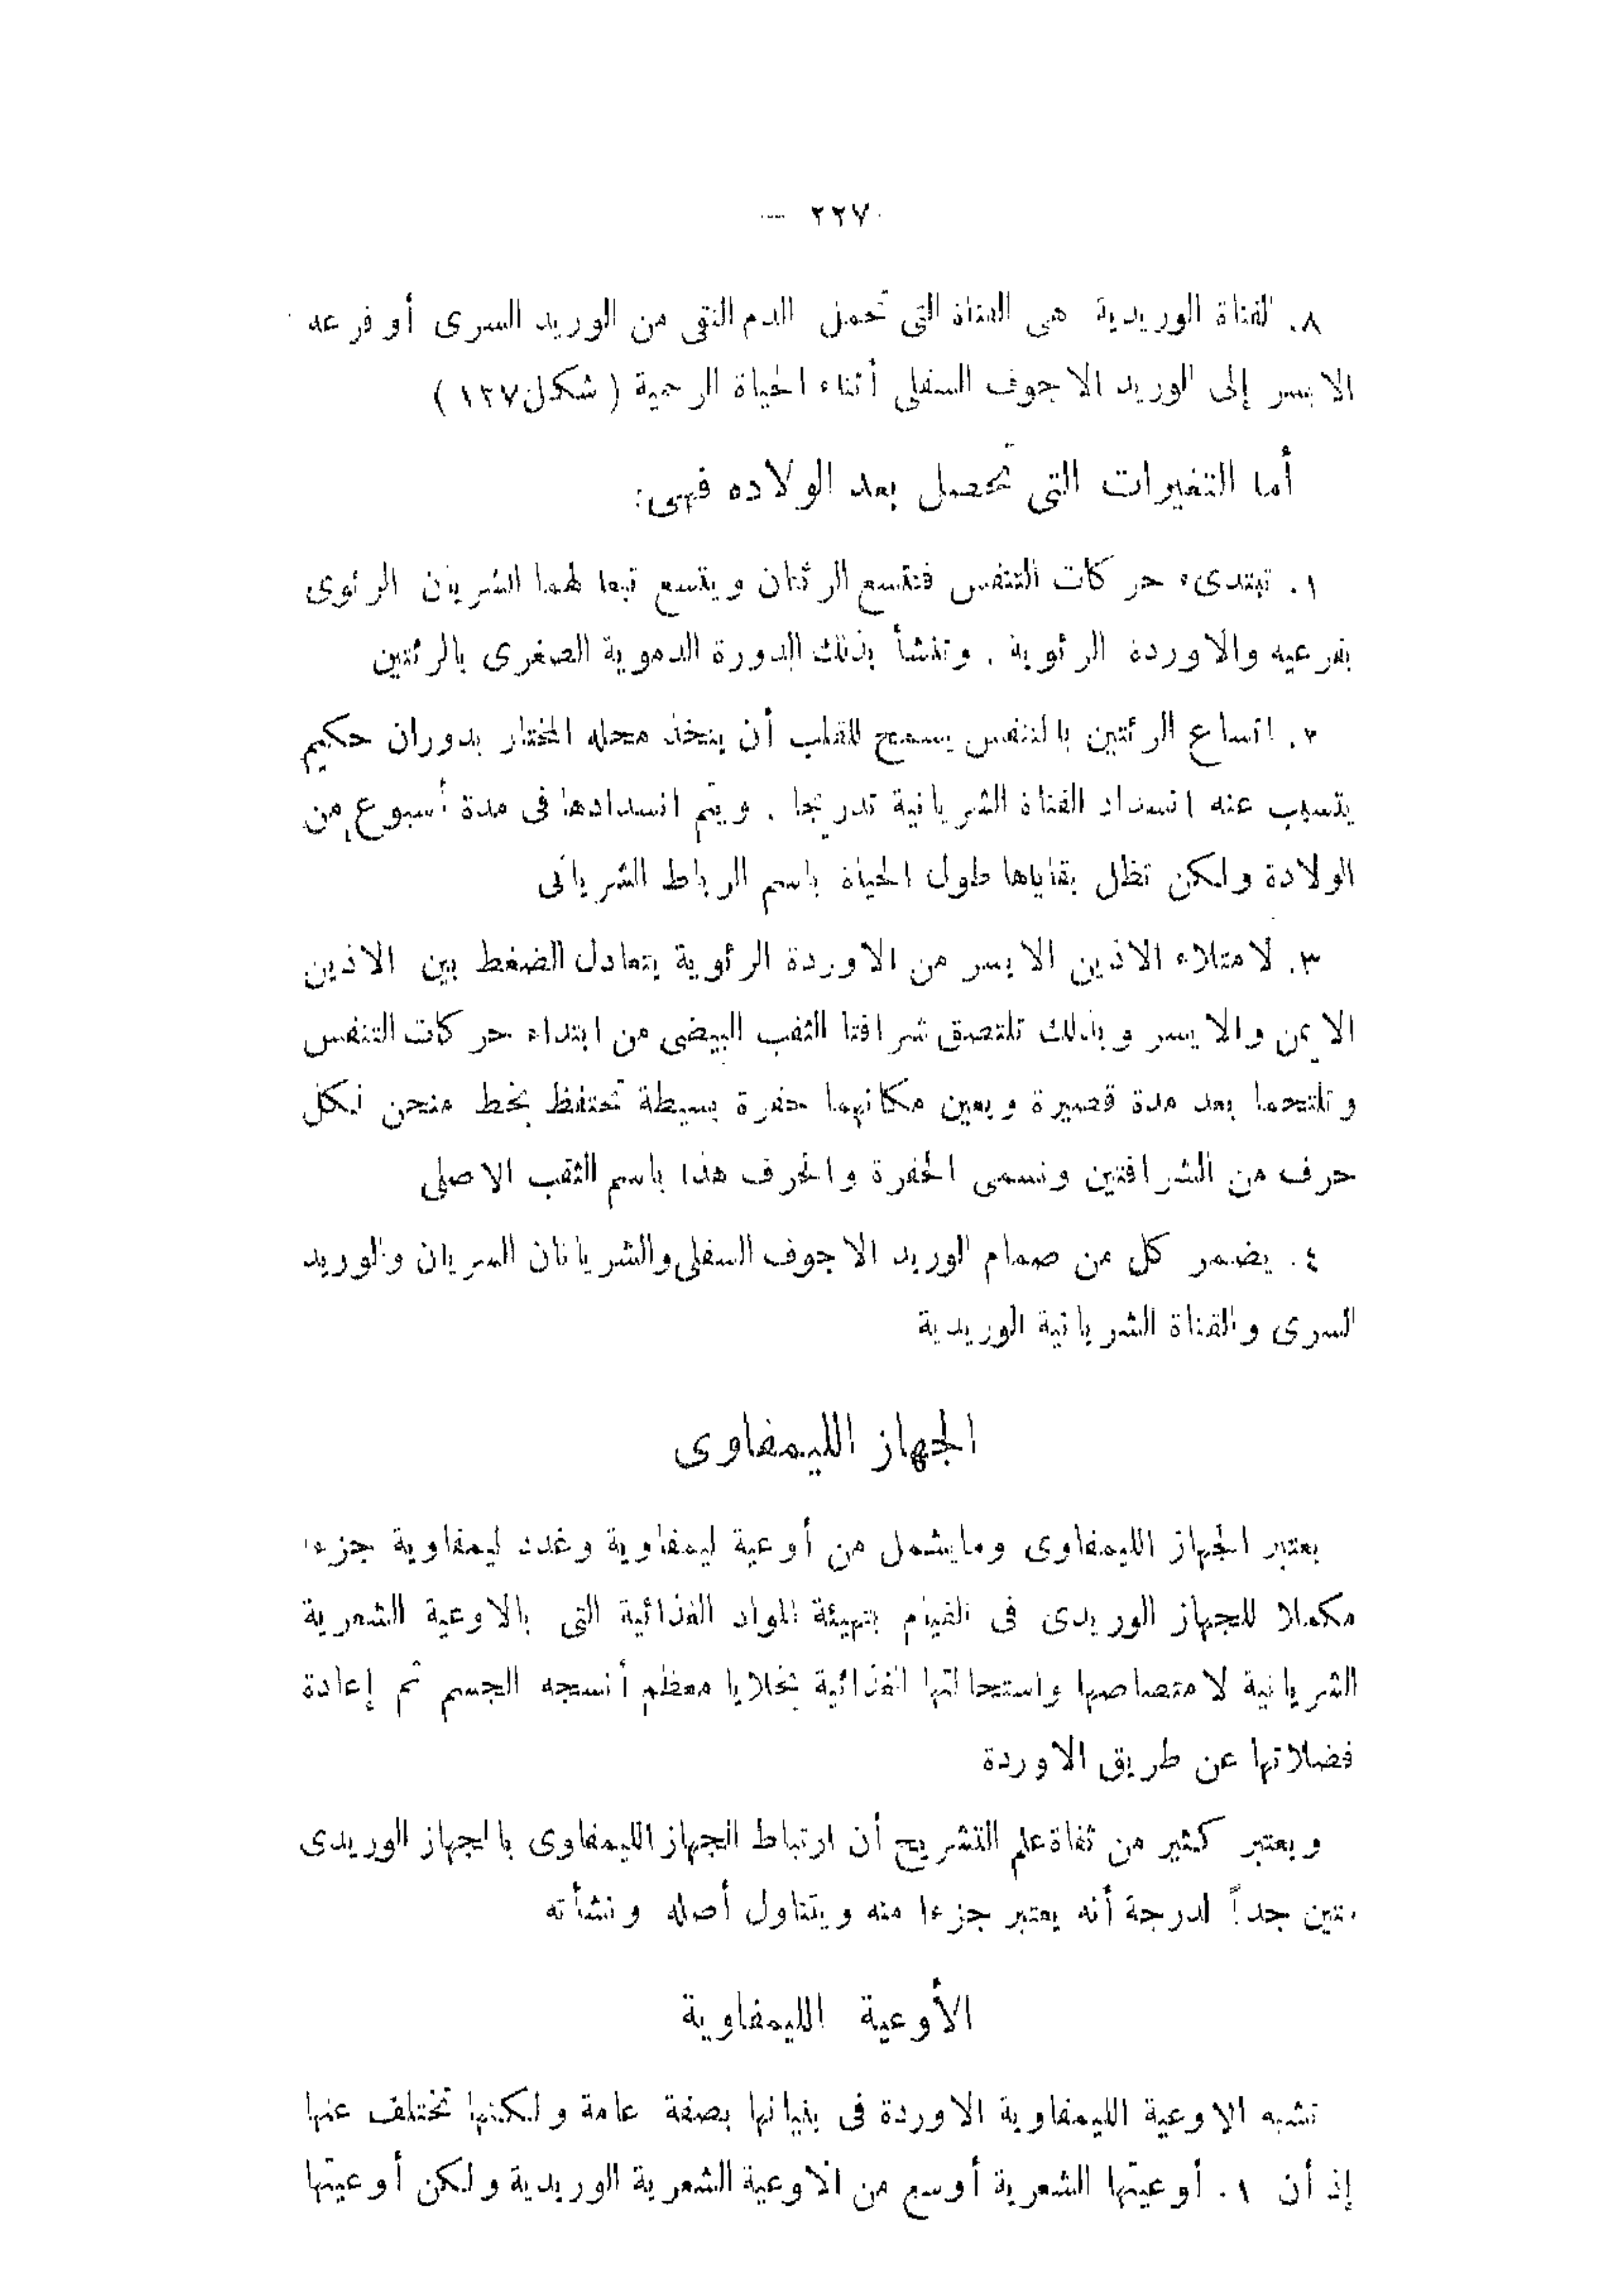 — ٢٢٧
٨. القناة الوريدية هى القناة التى تحمل الدم النقى من الوريد السرى أو فرعه
الايسر إلى الوريد الاجوف السفلى أثناء الحياة الرحمية (شكل ١٣٧)
أما التغيرات التى تحصل بعد الولاده فهى:
١. تبتدىء حركات التنفس فتتسع الرئتان ويتسع تبعا لهما الشريان الرئوى
بفرعيه والاوردة الرئوية. وتنشأ بذلك الدورة الدموية الصغرى بالرئتين
٢. اتساع الرئتين بالتنفس يسمح للقلب أن يتخذ محله المختار بدوران حكيم
يتسبب عنه انسداد القناة الشريانية تدريجا. ويتم انسدادها فى مدة أسبوع من
الولادة ولكن تظل بقاياها طول الحياة باسم الرباط الشريانى
٣. لامتلاء الاذين الايسر من الاوردة الرئوية يتعادل الضغط بين الاذين
الايمن والايسر وبذلك تلتصق شرافتا الثقب البيضى من ابتداء حركات التنفس
وتلتحما بعد مدة قصيرة ويعين مكانهما حفرة بسيطة تحتفظ بخط منحن لكل
حرف من الشرافتين وتسمى الحفرة والحرف هذا باسم الثقب الاصلى
٤. يضمر كل من صمام الوريد الاجوف السفلى والشريانان السريان والوريد
السرى والقناة الشريانية الوريدية
الجهاز الليمفاوى
يعتبر الجهاز الليمفاوى ومايشمل من أوعية ليمفاوية وغدد ليمفاوية جزءا
مكملا للجهاز الوريدى فى القيام بتهيئة المواد الغذائية التى بالاوعية الشعرية
الشريانية لامتصاصها واستحالتها الغذائية بخلايا معظم أنسجه الجسم ثم إعادة
فضلاتها عن طريق الاوردة
ويعتبر كثير من ثقاة علم التشريح أن ارتباط الجهاز الليمفاوى بالجهاز الوريدى
متين جداً لدرجة أنه يعتبر جزءا منه ويتناول أصله ونشأته
الأوعية الليمفاوية
تشبه الاوعية الليمفاوية الاوردة فى بنيانها بصفة عامة ولكنها تختلف عنها
إذ أن ١. أوعيتها الشعرية أوسع من الاوعية الشعرية الوريدية ولكن أوعيتها